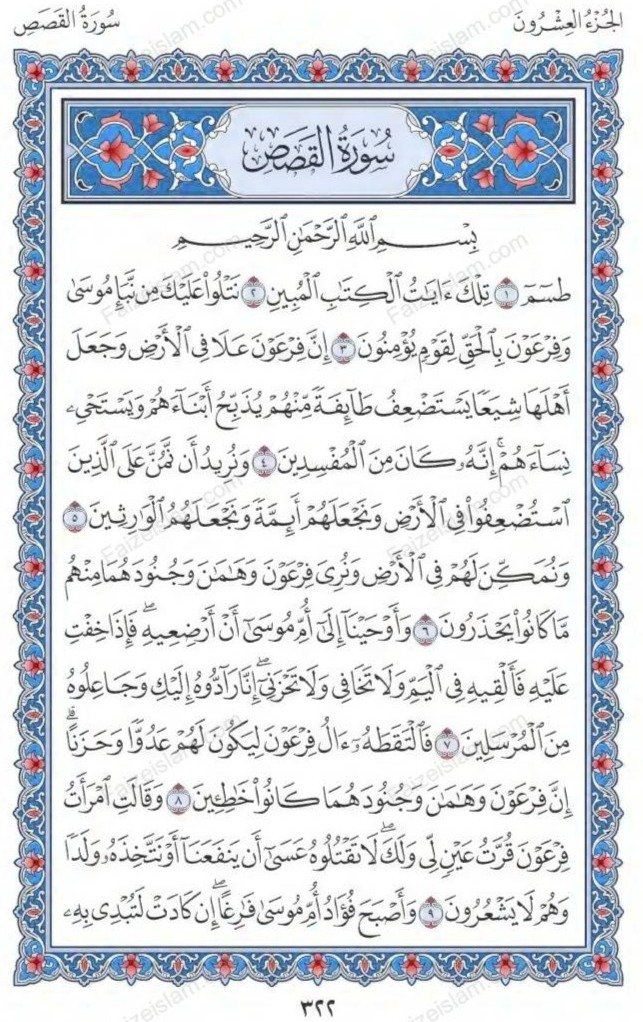 الجُزْءُ العِشْرُونَ
سُورَةُ القَصَصِ
سُورَةُ القَصَصِ
بِسْمِ ٱللَّهِ ٱلرَّحْمَٰنِ ٱلرَّحِيمِ
طسٓمٓ ١ تِلْكَ ءَايَٰتُ ٱلْكِتَٰبِ ٱلْمُبِينِ ٢ نَتْلُوا۟ عَلَيْكَ مِن نَّبَإِ مُوسَىٰ
وَفِرْعَوْنَ بِٱلْحَقِّ لِقَوْمٍ يُؤْمِنُونَ ٣ إِنَّ فِرْعَوْنَ عَلَا فِى ٱلْأَرْضِ وَجَعَلَ
أَهْلَهَا شِيَعًا يَسْتَضْعِفُ طَآئِفَةً مِّنْهُمْ يُذَبِّحُ أَبْنَآءَهُمْ وَيَسْتَحْىِۦ
نِسَآءَهُمْ ۚ إِنَّهُۥ كَانَ مِنَ ٱلْمُفْسِدِينَ ٤ وَنُرِيدُ أَن نَّمُنَّ عَلَى ٱلَّذِينَ
ٱسْتُضْعِفُوا۟ فِى ٱلْأَرْضِ وَنَجْعَلَهُمْ أَئِمَّةً وَنَجْعَلَهُمُ ٱلْوَٰرِثِينَ ٥
وَنُمَكِّنَ لَهُمْ فِى ٱلْأَرْضِ وَنُرِىَ فِرْعَوْنَ وَهَٰمَٰنَ وَجُنُودَهُمَا مِنْهُم
مَّا كَانُوا۟ يَحْذَرُونَ ٦ وَأَوْحَيْنَآ إِلَىٰٓ أُمِّ مُوسَىٰٓ أَنْ أَرْضِعِيهِ ۖ فَإِذَا خِفْتِ
عَلَيْهِ فَأَلْقِيهِ فِى ٱلْيَمِّ وَلَا تَخَافِى وَلَا تَحْزَنِىٓ ۖ إِنَّا رَآدُّوهُ إِلَيْكِ وَجَاعِلُوهُ
مِنَ ٱلْمُرْسَلِينَ ٧ فَٱلْتَقَطَهُۥٓ ءَالُ فِرْعَوْنَ لِيَكُونَ لَهُمْ عَدُوًّا وَحَزَنًا ۗ
إِنَّ فِرْعَوْنَ وَهَٰمَٰنَ وَجُنُودَهُمَا كَانُوا۟ خَٰطِـِٔينَ ٨ وَقَالَتِ ٱمْرَأَتُ
فِرْعَوْنَ قُرَّتُ عَيْنٍ لِّى وَلَكَ ۖ لَا تَقْتُلُوهُ عَسَىٰٓ أَن يَنفَعَنَآ أَوْ نَتَّخِذَهُۥ وَلَدًا
وَهُمْ لَا يَشْعُرُونَ ٩ وَأَصْبَحَ فُؤَادُ أُمِّ مُوسَىٰ فَٰرِغًا ۖ إِن كَادَتْ لَتُبْدِى بِهِۦ
٣٢٢
Faizeislam.com